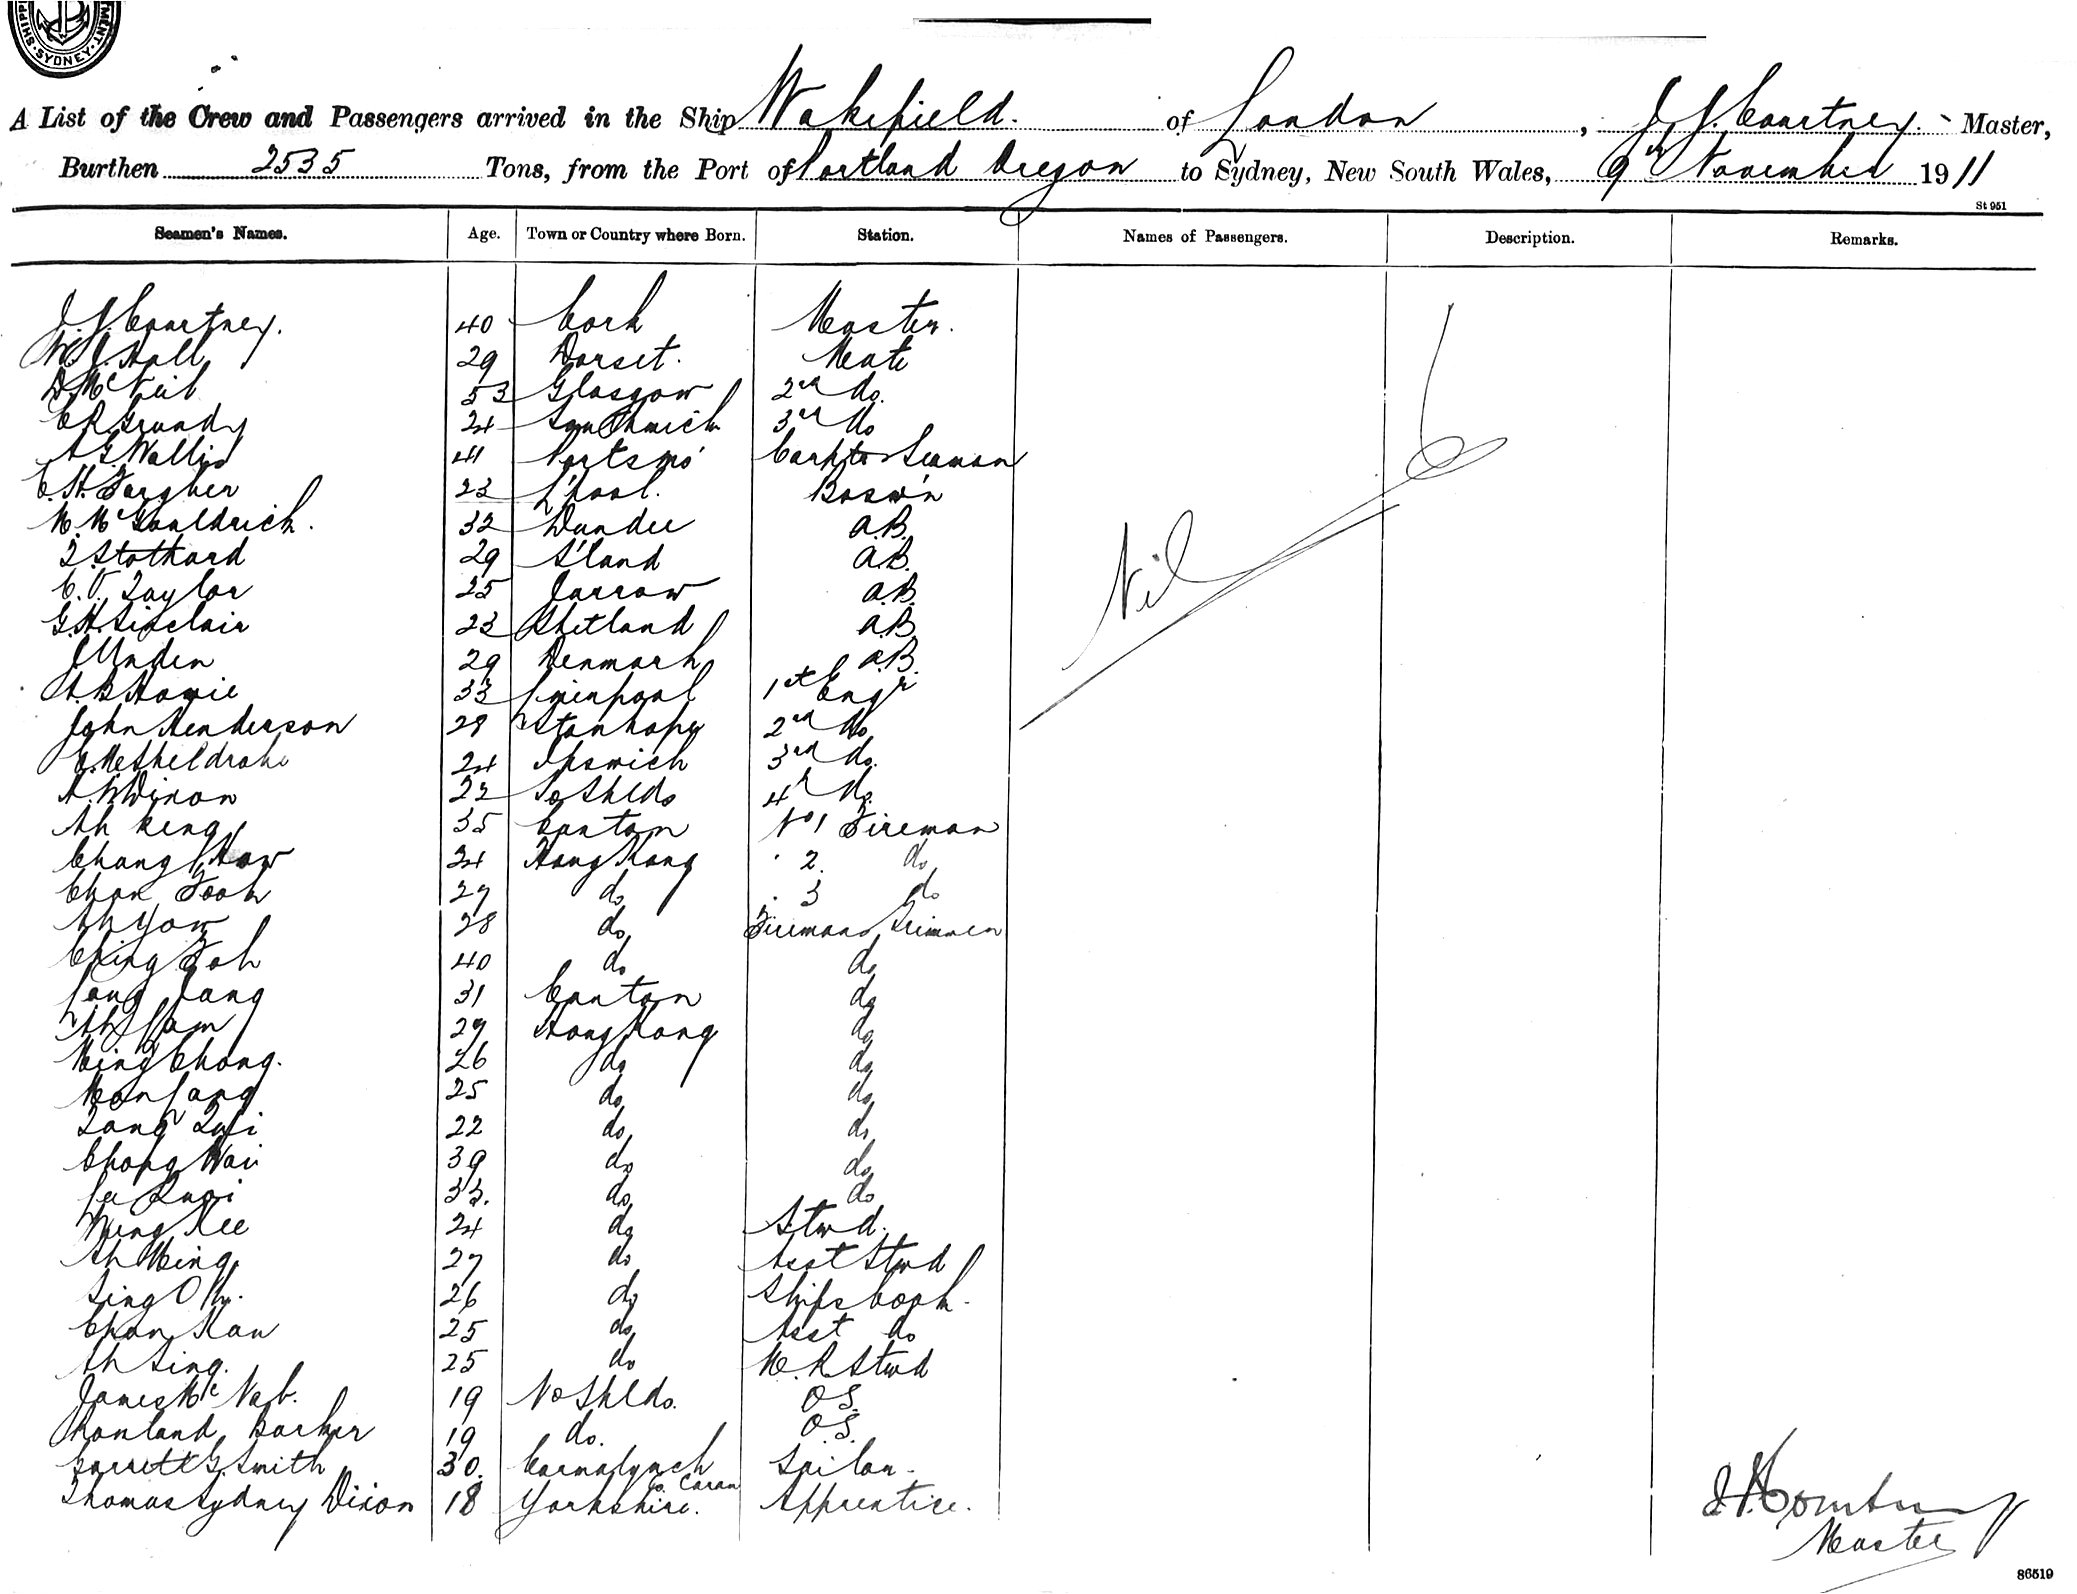 SHIPP MENT SYDNEY
A List of the Crew and Passengers arrived in the Ship Wakefield. of London, J. J. Courtney. - Master,
Burthen 2535 Tons, from the Port of Portland Oregon to Sydney, New South Wales, 9th November 1911
St 951
Seamen's Names. Age. Town or Country where Born. Station. Names of Passengers. Description. Remarks.
J. J. Courtney. 40 Cork Master.
W. J. Hall 29 Dorset. Mate
D. McNeil 53 Glasgow 2nd do.
C R Grundy 24 3rd do
A G Wallis 41 Portsmo' Carptr Seaman
C. H. Fargher 23 L'pool. Bosw'n
M. McGouldrich. 32 Dundee A.B.
T. Stothard 29 S'land A.B.
C. V. Taylor 25 Jarrow A.B.
G. H. Sinclair 23 Shetland A.B.
J Unden 29 Denmark A.B.
A. B Howie 33 Liverpool 1st Engr
John Henderson 28 Stanhope 2nd do
24 Ipswich 3rd do.
A. W Dixon 22 So Shlds 4th do.
Ah King 35 Canton No 1 Fireman
Chang How 24 Hong Kong " 2. do
Chan Fook 27 do " 3 do
Ah Yow 28 do Firemans Trimmer
Ching Foh 40 do do
Long Jang 31 Canton do
Ah Sam 27 Hong Kong do
Ming Chong. 26 do do
Man Lang 25 do do
22 do do
Chong Wai 39 do do
33. do do
Ming Kee 24 do Stwd.
Ah Ming 27 do Asst Stwd
26 do Ships Cook.
Chan Kau 25 do Asst do
Ah Sing. 25 do M. R Stwd
James McNab. 19 No Shlds. O.S.
Rowland Barker 19 do. O.S.
Garrett G. Smith 30. Carnalynch Co. Cavan Sailor.
Thomas Sydney Dixon 18 Yorkshire. Apprentice.
Nil
J. J. Courtney
Master
86519